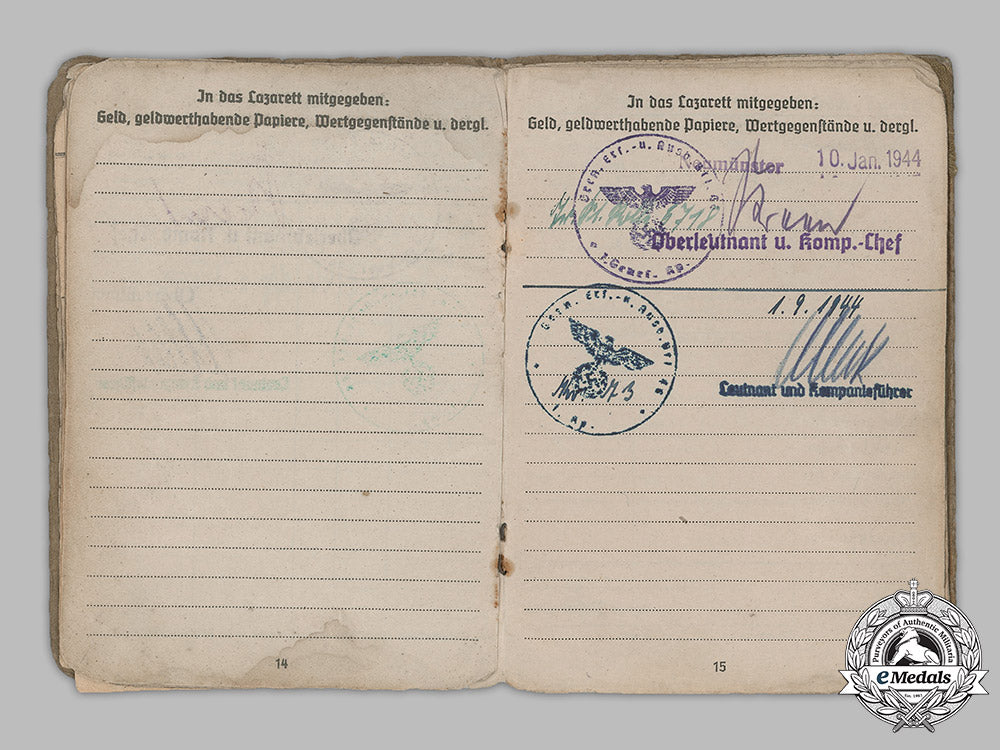 In das Lazarett mitgegeben:
Geld, geldwerthabende Papiere, Wertgegenstände u. dergl.
14
In das Lazarett mitgegeben:
Geld, geldwerthabende Papiere, Wertgegenstände u. dergl.
Neumünster 10. Jan. 1944
Oberleutnant u. Komp.-Chef
1. Genes. Kp.
1.9.1944
Gren. Ers.-u. Ausb. Btl. 46
Leutnant und Kompanieführer
15
Purveyors of Authentic Militaria
eMedals